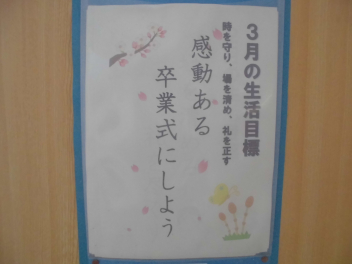 3月の生活目標
時を守り、場を清め、礼を正す
感動ある
卒業式にしよう